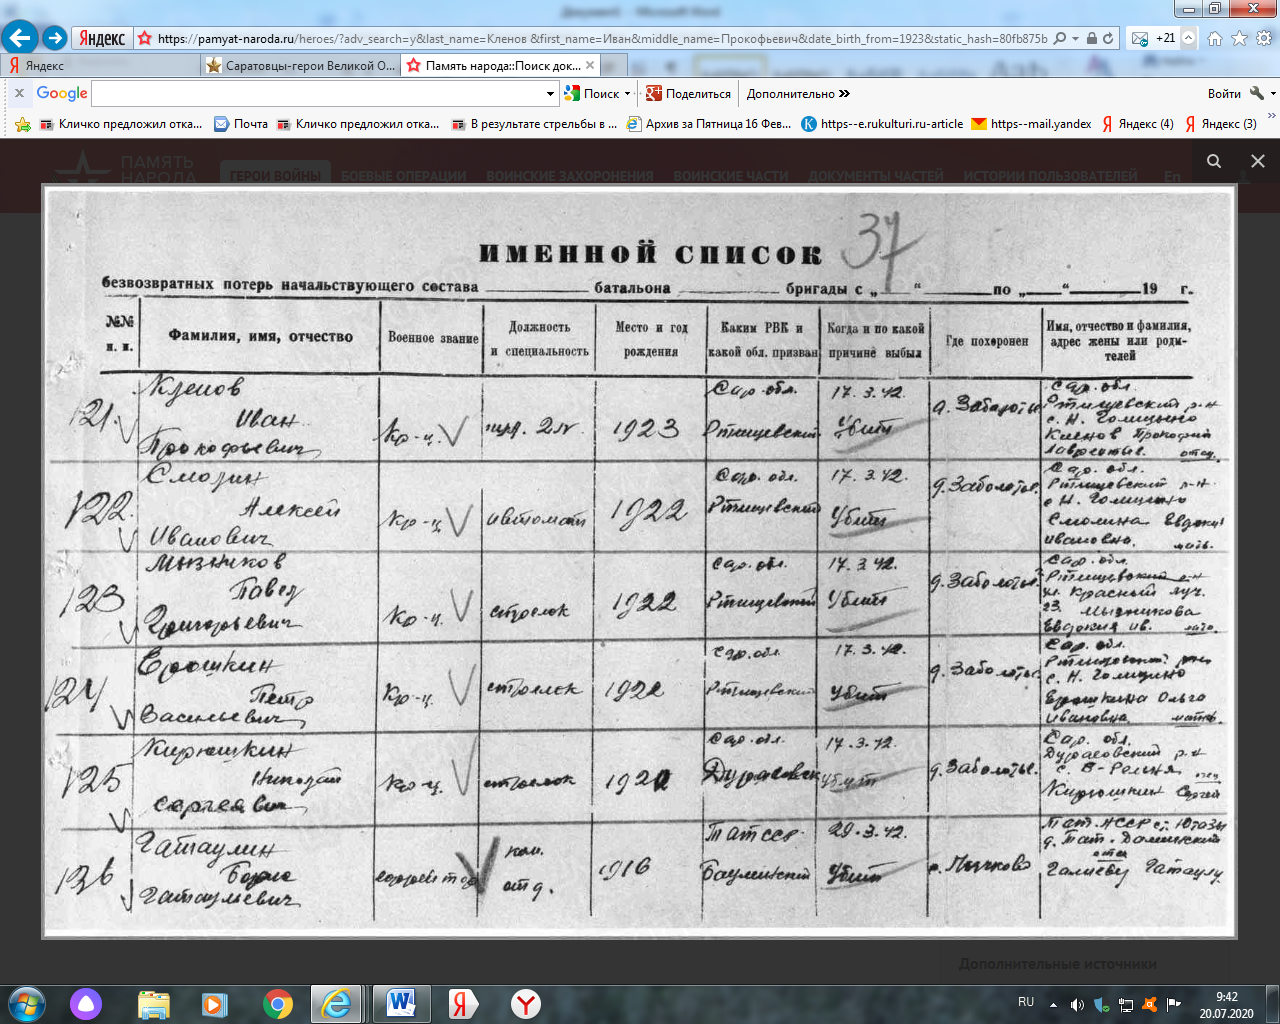 Документ1 - Microsoft Word
Яндекс https://pamyat-naroda.ru/heroes/?adv_search=y&last_name=Кленов &first_name=Иван&middle_name=Прокофьевич&date_birth_from=1923&static_hash=80fb875b +21
Яндекс Саратовцы-герои Великой О... Память народа::Поиск док...
Google Поиск Поделиться Дополнительно Войти
Кличко предложил отка... Почта Кличко предложил отка... В результате стрельбы в ... Архив за Пятница 16 Фев... https--e.rukulturi.ru-article https--mail.yandex Яндекс (4) Яндекс (3)
ПАМЯТЬ
НАРОДА
ГЕРОИ ВОЙНЫ БОЕВЫЕ ОПЕРАЦИИ ВОИНСКИЕ ЗАХОРОНЕНИЯ ВОИНСКИЕ ЧАСТИ ДОКУМЕНТЫ ЧАСТЕЙ ИСТОРИИ ПОЛЬЗОВАТЕЛЕЙ En
37
ИМЕННОЙ СПИСОК
безвозвратных потерь начальствующего состава батальона бригады с „ “ по „ “ 19 г.
№№
п. п.
Фамилия, имя, отчество
Военное звание
Должность
и специальность
Место и год
рождения
Каким РВК и
какой обл. призван
Когда и по какой
причине выбыл
Где похоронен
Имя, отчество и фамилия,
адрес жены или роди-
телей
121.
Кленов
Иван
Прокофьевич
Кр-ц.
1923
Сар. обл.
Ртищевский
17.3.42.
Убит
д. Заболотье
Сар. обл.
Ртищевский р-н
с. Н. Голицыно
Кленов Прокофий
Лаврентье. отец.
122.
Сморин
Алексей
Иванович
Кр-ц.
автомат
1922
Сар. обл.
Ртищевский
17.3.42.
Убит
д. Заболотье.
Сар. обл.
Ртищевский р-н.
с Н. Голицыно
Смолина Евдокия
Ивановна. мать.
123
Мызников
Павел
Григорьевич
Кр-ц.
стрелок
1922
Сар. обл.
Ртищевский
17.3.42.
Убит
д. Заболотье.
Сар. обл.
Ртищевский р-н
Красный луч.
23. Мызникова
Евдокия Ив. мать.
124
Ерошкин
Петр
Васильевич
Кр-ц.
стрелок
1922
Сар. обл.
Ртищевский
17.3.42.
Убит
д. Заболотье.
Сар. обл.
Ртищевский
с. Н. Голицыно
Ерошкина Ольга
Ивановна. мать.
125
Кирюшкин
Николай
Сергеевич
Кр-ц.
стрелок
Сар. обл.
Дурасовск
17.3.42.
убит
д. Заболотье.
Сар. обл.
Дурасовский р-н
отец
Кирюшкин Сергей
136
Гатаулин
Гатаулевич
ком.
отд.
1916
Тат ССР.
Бауманский
29.3.42.
Убит
Мычково
Тат. АССР ст. Ютазы
отец
Галиеву Гатаулу
Дополнительные источники
RU 9:42
20.07.2020